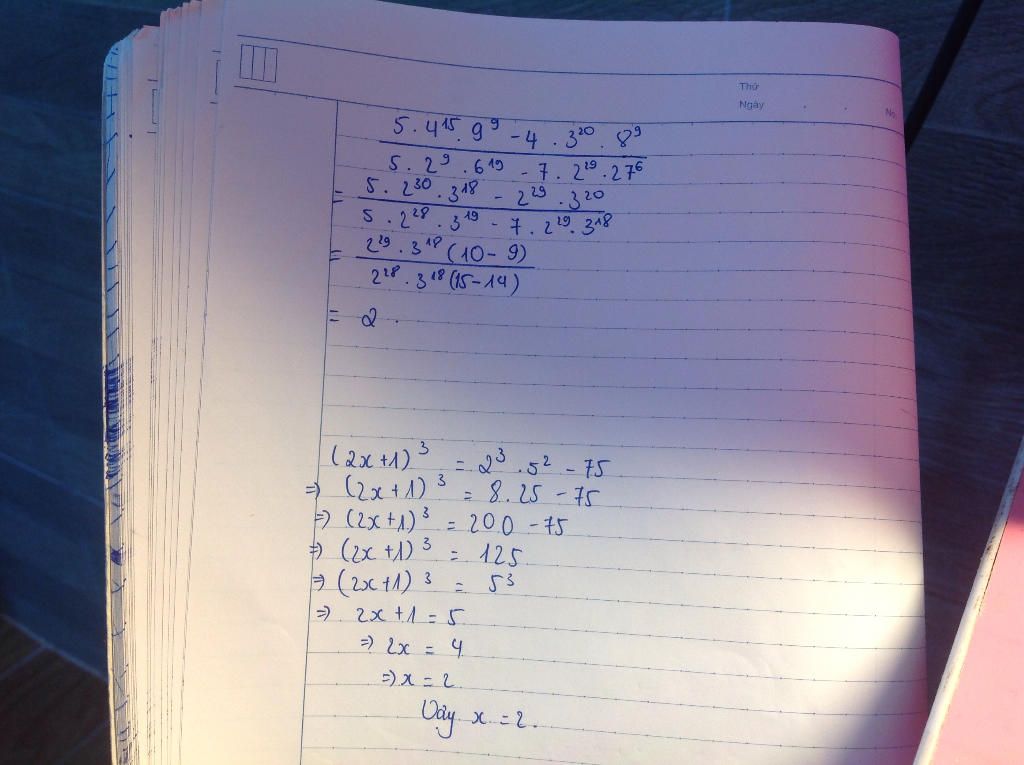 Thứ
Ngày . . No.
5 . 4¹⁵ . 9⁹ - 4 . 3²⁰ . 8⁹
5 . 2⁹ . 6¹⁹ - 7 . 2²⁹ . 27⁶
= 5 . 2³⁰ . 3¹⁸ - 2²⁹ . 3²⁰
5 . 2²⁸ . 3¹⁹ - 7 . 2²⁹ . 3¹⁸
= 2²⁹ . 3¹⁸ (10 - 9)
2²⁸ . 3¹⁸ (15 - 14)
= 2 .
(2x+1)³ = 2³ . 5² - 75
=> (2x+1)³ = 8 . 25 - 75
=> (2x+1)³ = 200 - 75
=> (2x+1)³ = 125
=> (2x+1)³ = 5³
=> 2x+1 = 5
=> 2x = 4
=> x = 2
Vậy x = 2.